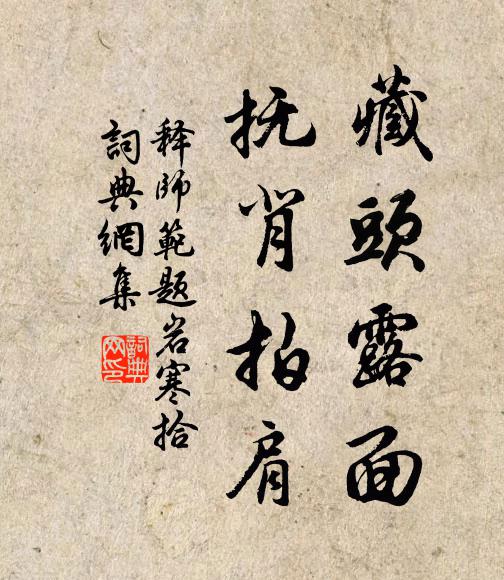 藏頭露面
抚背拍肩
释師範题岩寒拾
詞典網集
詞典
网印